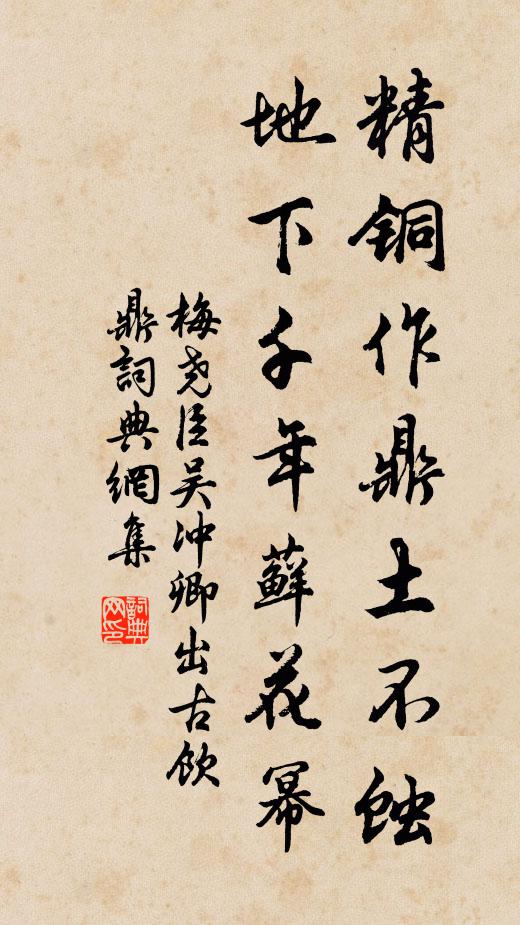 精铜作鼎土不蚀
地下千年藓花幂
梅尧臣吴冲卿出古饮
鼎詞典網集
詞典网印